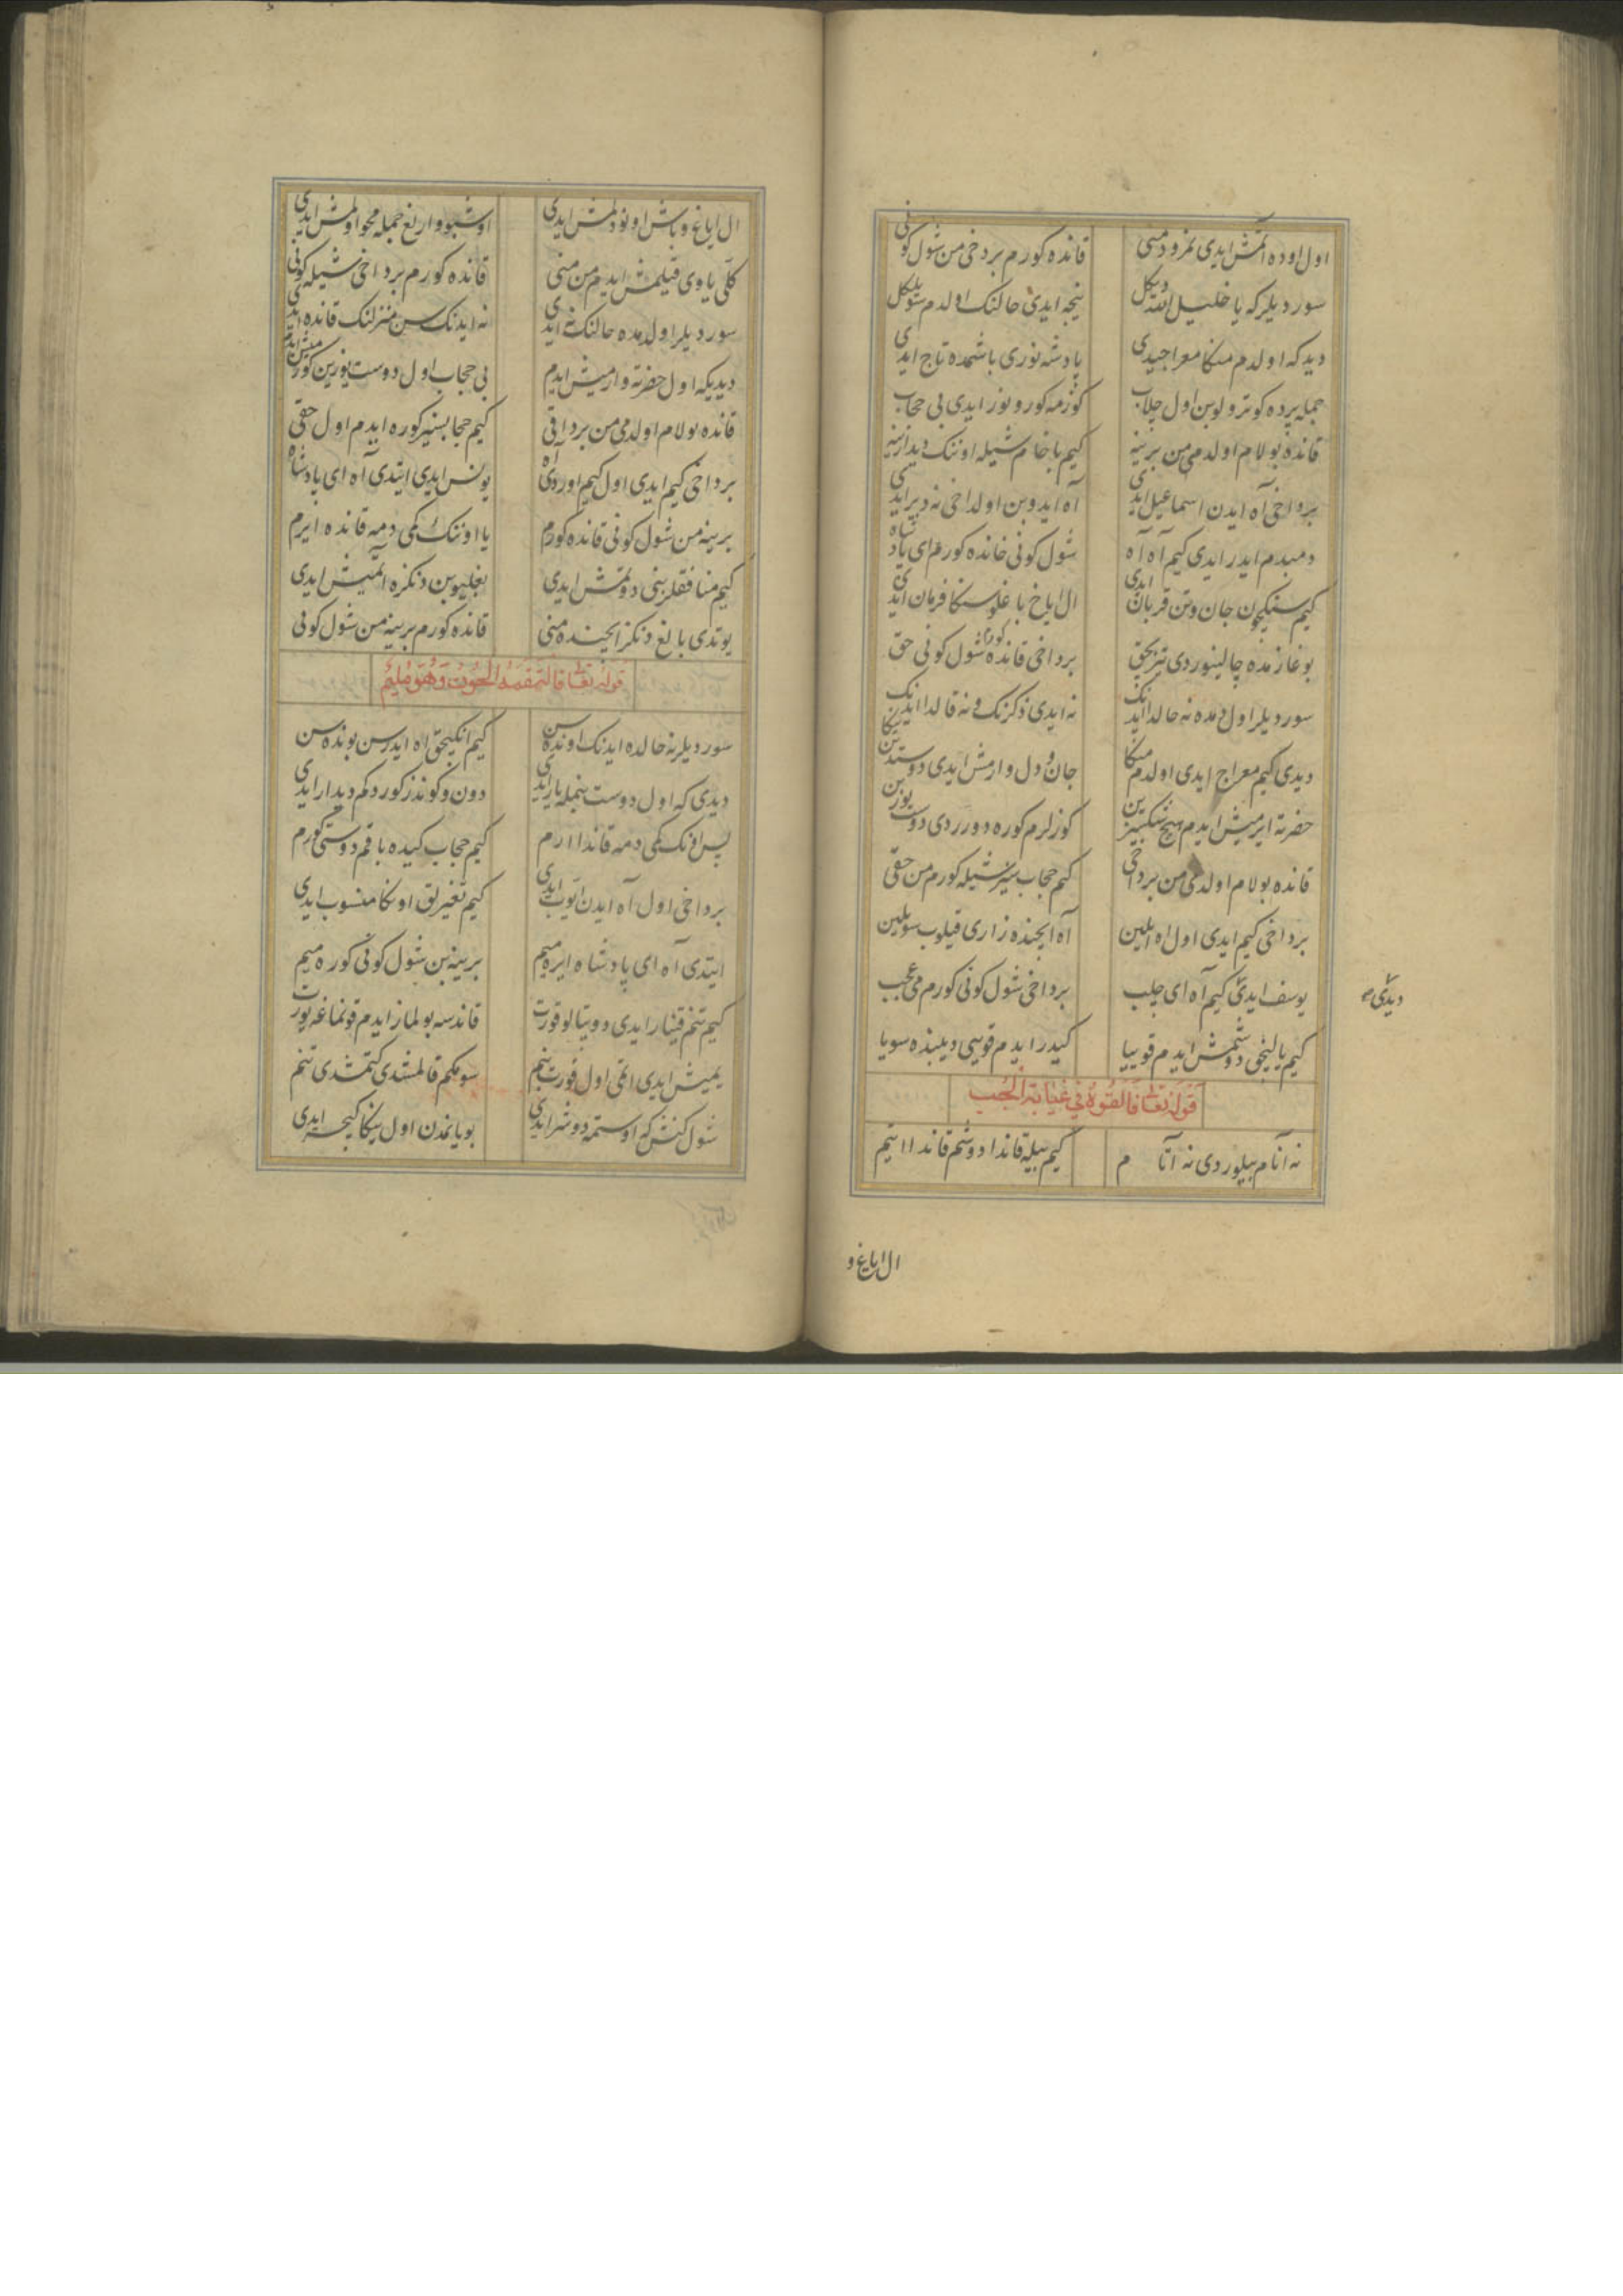 اول اوده آتمش ایدی نمرود منی قانده کورم بر دخی من شول کونی
سوردیلر که یا خلیل الله دیکل نیجه ایدی حالنک اولدم سویلکل
دیدکه اولدم منکا معراجیدی پادشه نوری باشمده تاج ایدی
جمله پرده کوترولوبن اول چلاب کوزمه کورونوز ایدی بی حجاب
قانده بولام اولدمی من برینه کیم باخام شیله اوننک دیدارینه
بر داخی آه ایدن اسماعیل ایدی آه ایدوبن اولداخی نه دیر ایدی
دمبدم ایدر ایدی کیم آه آه شول کونی خانده کورم ای پادشاه
کیم سنیکچون جان و تن قربان ایدی ال ایاخ باغلو سنکا فرمان ایدی
بوغازمده چالینوردی تیز بچق بر داخی قانده کورم شول کونی حق
سوردیلر اول دمده نه حالدا ایدنک نه ایدی ذکرنک و نه قالدا ایدنک
دیدی کیم معراج ایدی اولدم منکا جان و دل وارمش ایدی دوستدن یکا
حضرته ایرمیش ایدم هیچ شکسیزین کوزلرم کوره دورردی دوست یوزین
قانده بولام اولدمی من بر داخی کیم حجاب سیز شیله کورم من حقی
بر داخی کیم ایدی اول اه ایلین آه ایچنده زاری قیلوب سویلین
یوسف ایدی کیم آه ای چلب بر داخی شول کونی کورم می عجب
دیدی
کیم یالینجق دوشمش ایدم قوییا کیدر ایدم قویی دیبنده سویا
قوله تعالی فالقوه فی غیابة الجب
نه آنام بیلوردی نه آتام کیم بیله قاندا دوشم قاندا ایتم
ال ایاغ و
ال ایاغ و باش اونودلمش ایدی اوشبو وارلغ جمله محو اولمش ایدی
کلی یاوی قیلمش ایدم من منی قانده کورم بر داخی شیله کونی
سوردیلر اول دمده حالنک نه ایدی نه ایدنک سن منزلنک قانده ایدی
دیدیکه اول حضرته وارمیش ایدم بی حجاب اول دوست یوزین کورمیش ایدم
قانده بولام اولدمی من بر داقی کیم حجابسیز کوره ایدم اول حقی
بر داخی کیم ایدی اول کیم اوردی آه یونس ایدی ایتدی آه ای پادشاه
برینه من شول کونی قانده کورم یا اوننک کمی دمه قانده ایرم
کیم منافقلر بنی دوتمش ایدی بغلیوبن دنکزه آتمیش ایدی
یوتدی بالغ دنکز ایچنده منی قانده کورم برینه من شول کونی
قوله تعالی فالتقمه الحوت وهو ملیم
سوردیلر نه حالده ایدنک اونده سن کیم انکیچق اه ایدرسن بونده سن
دیدی که اول دوست بنمله یار ایدی دون و کوندز کوردکم دیدار ایدی
پس اونک کمی دمه قاندا ارم کیم حجاب کیده باقم دوستی کورم
بر داخی اول آه ایدن ایوب ایدی کیم تغیرلق اونکا منسوب ایدی
ایتدی آه ای پادشاه ایره میم برینه بن شول کونی کوره میم
کیم تنم قینار ایدی دوپتالو قورت قاندسه بولماز ایدم قونماغه یورت
یمیش ایدی اتمی اول قورت بنم سومکم قالمشدی کتمشدی تنم
شول کنش که اوستمه دوشر ایدی بویانمدن اول ینکا کیچر ایدی